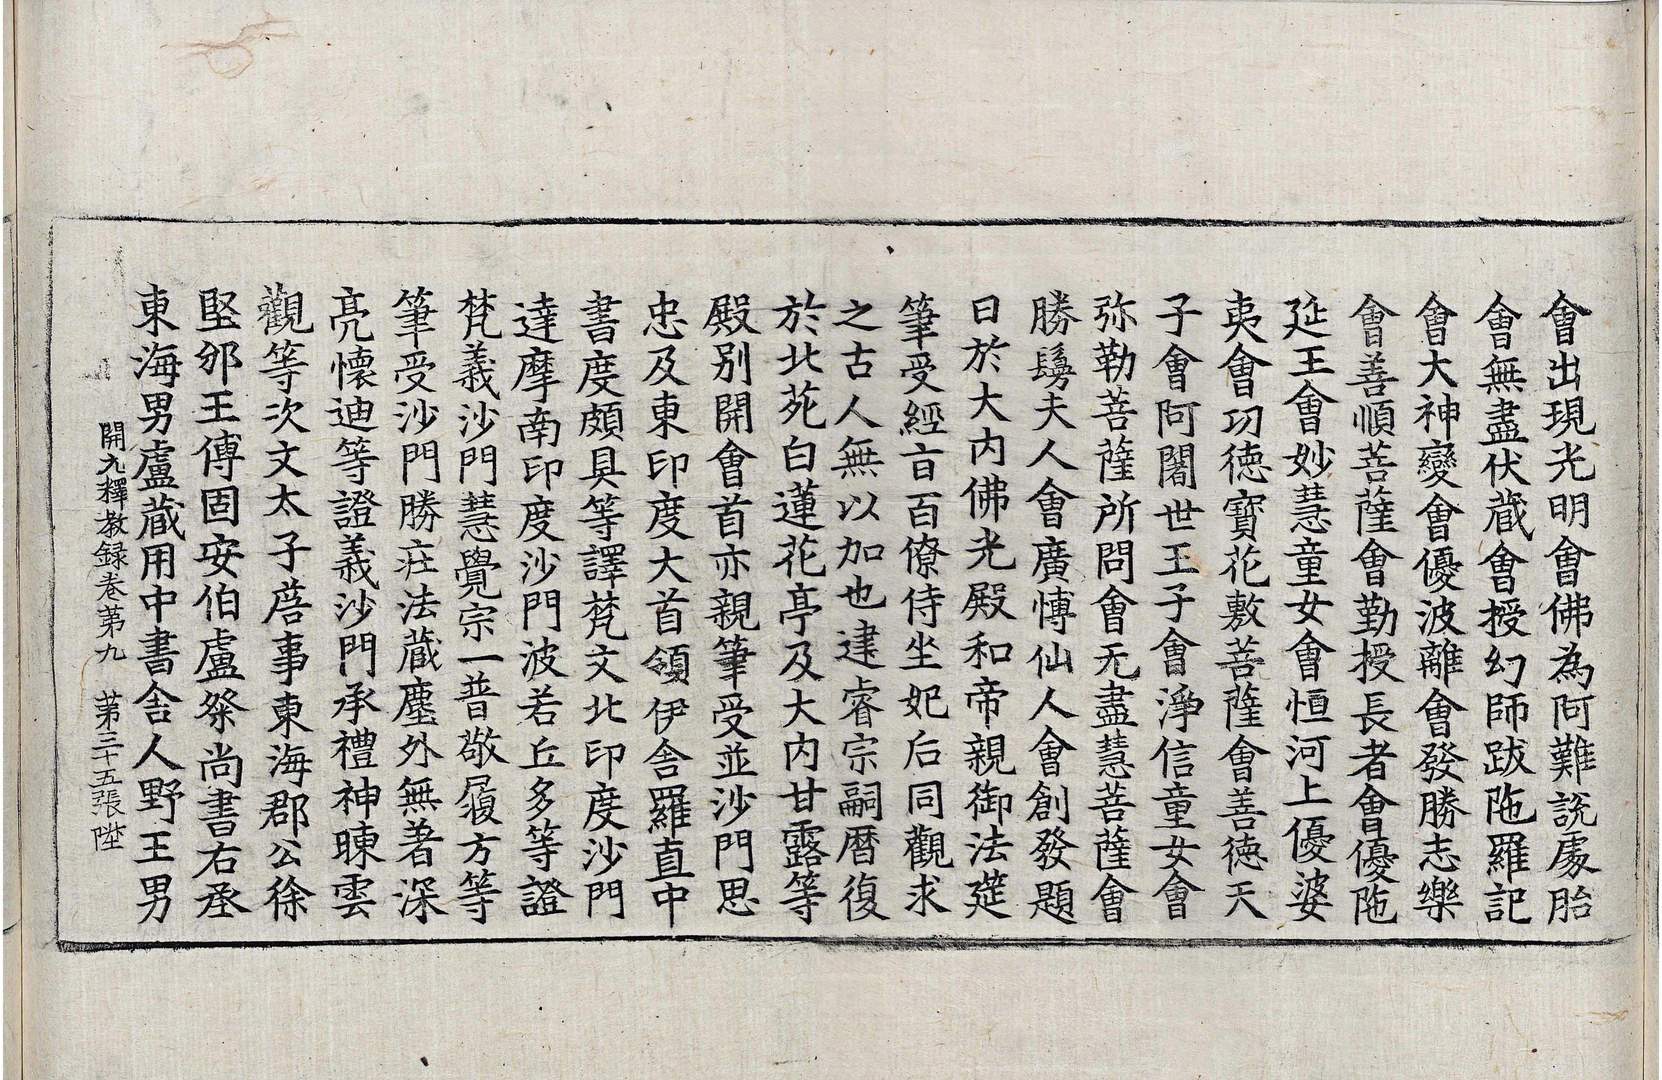 會出現光明會佛為阿難說處胎
會無盡伏藏會授幻師跋陁羅記
會大神變會優波離會發勝志樂
會善順菩薩會勤授長者會優陁
延王會妙慧童女會恒河上優婆
夷會功德寶花敷菩薩會善德天
子會阿闍世王子會淨信童女會
弥勒菩薩所問會无盡慧菩薩會
勝鬘夫人會廣愽仙人會創發題
日於大內佛光殿和帝親御法筵
筆受經百僚侍坐妃后同觀求
之古人無以加也逮睿宗嗣曆復
於北苑白蓮花亭及大內甘露等
殿別開會首亦親筆受並沙門思
忠及東印度大首領伊舍羅直中
書度頗具等譯梵文北印度沙門
達摩南印度沙門波若丘多等證
梵義沙門慧覺宗一普敬履方等
筆受沙門勝莊法藏塵外無著深
亮懷迪等證義沙門承禮神暕雲
觀等次文太子詹事東海郡公徐
堅邠王傅固安伯盧粲尚書右丞
東海男盧藏用中書舍人野王男
開元釋教録卷苐九　苐三十五張陞